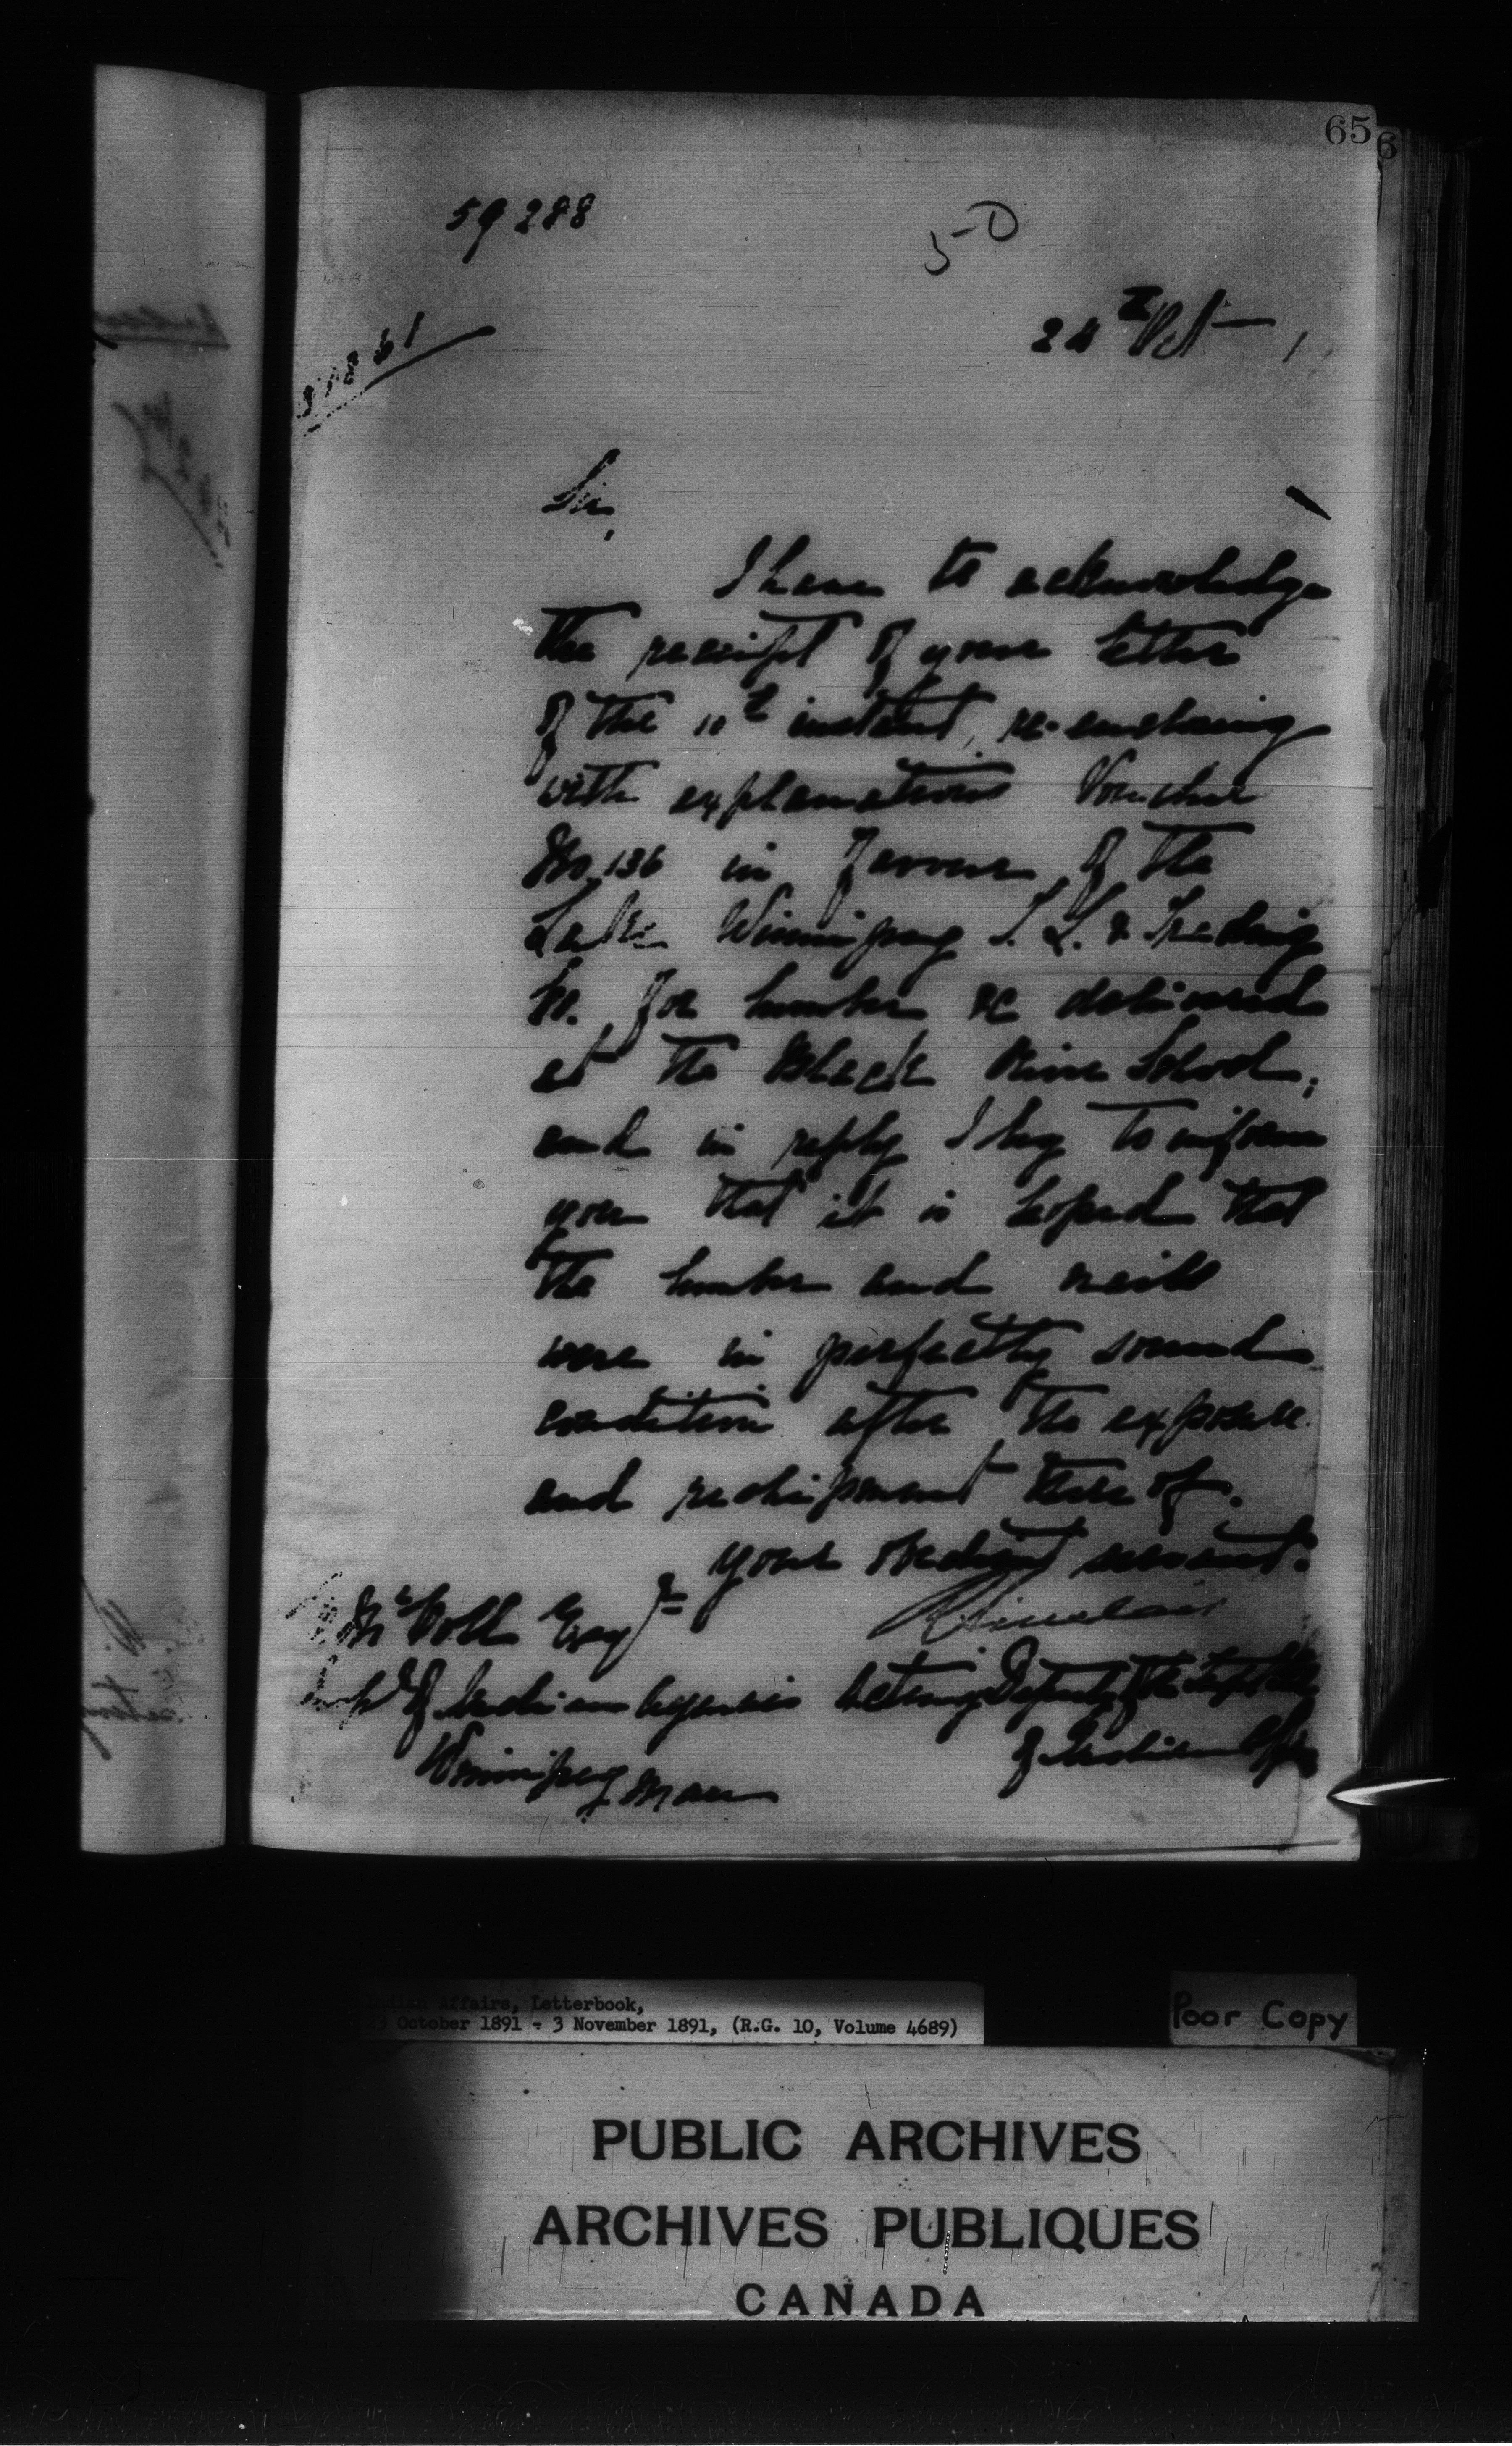 65
6
59288
50
24th Oct
Sir,
I have to acknowledge
the receipt of your letter
of the 10th instant, re-enclosing
with explanations Voucher
No. 136 in favour of the
Lake Winnipeg T. L. & Trading
Co. for lumber &c delivered
at the Black River School,
and in reply I beg to inform
you that it is hoped that
the lumber and nails
were in perfectly sound
condition after the exposure
and reshipment thereof.
your obedient servant.
McColl Esqre
R Sinclair
Inspr of Indian Agencies
Acting Deputy of the Supt Genl
Winnipeg Man
of Indian Affrs
Indian Affairs, Letterbook,
23 October 1891 - 3 November 1891, (R.G. 10, Volume 4689)
Poor Copy
PUBLIC ARCHIVES
ARCHIVES PUBLIQUES
CANADA